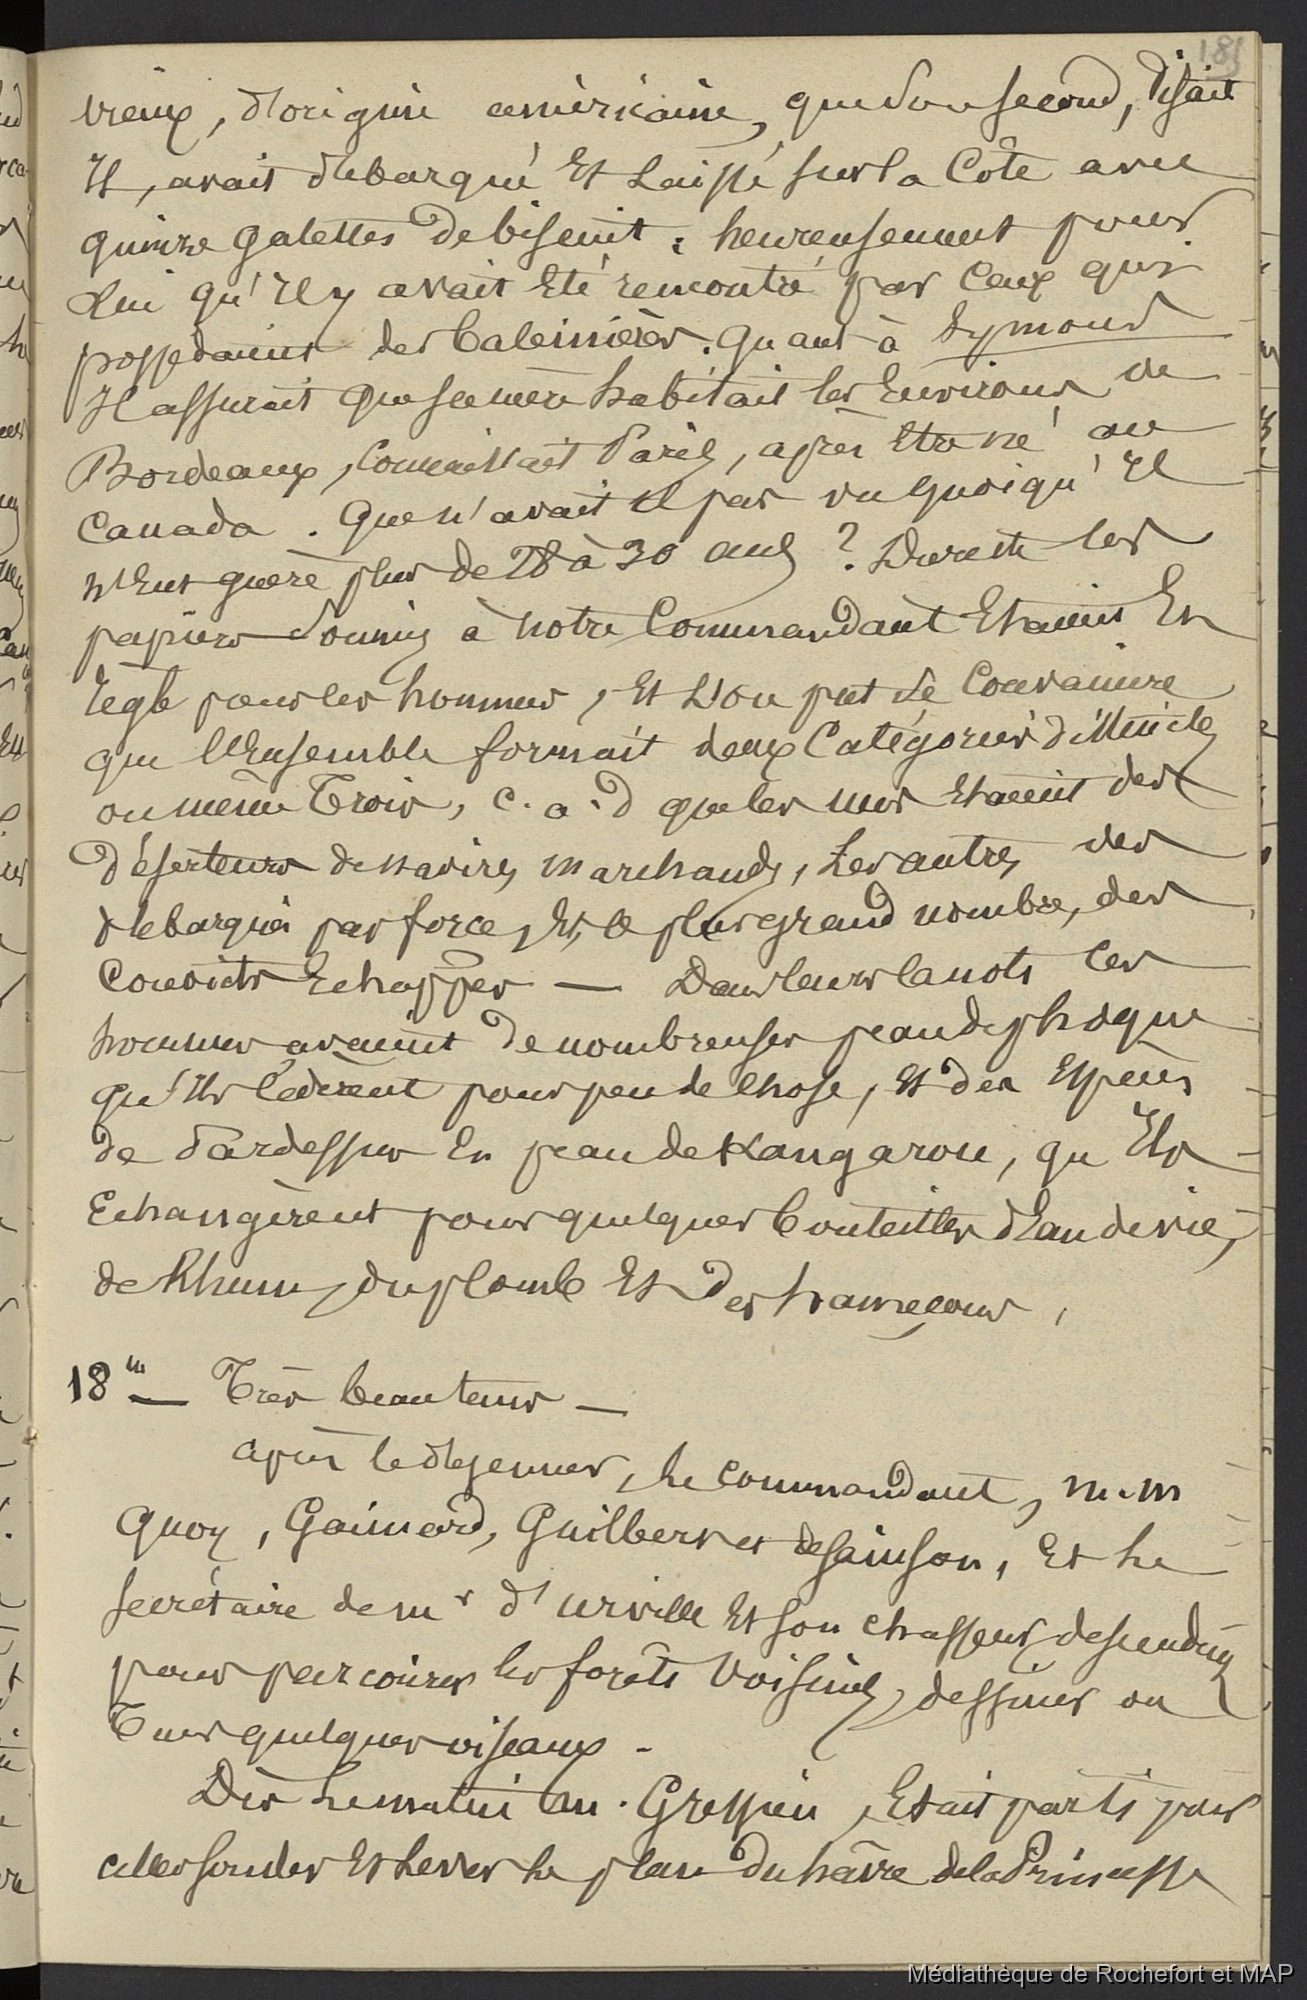 185
vieux, d'origine américaine, que son second, disait
Il, avait debarqué Et Laissé sur la Côte avec
quinze galettes de biscuit ; heureusement pour
Lui qu'Il y avait Eté rencontré par Ceux qui
possédaient des baleinières. Quant à Symour
Il assurait que sa mère habitait les Environs de
Bordeaux, Connaissait Paris, après Etre né au
Canada. Que n'avait il pas vu quoiqu'Il
n'Eut guère plus de 28 à 30 ans ? Du reste les
papiers soumis à notre Commandant Etaient En
règle pour les hommes, Et L'on put se Convaincre
que l'Ensemble formait deux Catégories distinctes
ou même Trois, c. a. d que les uns Etaient des
déserteurs de navires marchands, Les autres des
debarqués par force, Et, le plus grand nombre, des
Convicts Echappés — Dans leurs Canots les
hommes avaient de nombreuses peau de phoque
qu'Ils Cédèrent pour peu de chose, Et des Espèces
de Pardessus En peau de Kangarou, qu'Ils
Echangèrent pour quelques bouteilles d'Eau de vie,
de Rhum, du plomb Et des hameçons,
18 — Très beau tems —
après le dejeuner, Le Commandant, m.m
Quoy, Gaimard, Guilbert et deSainson, Et Le
secrétaire de mr d'urville Et son chasseur descendirent
pour parcourir les forêts Voisines, dessiner ou
Tuer quelques oiseaux.
Dès Le matin m. Gressien, Etait parti pour
aller sonder Et Lever Le plan du hâvre de la Princesse
Médiathèque de Rochefort et MAP